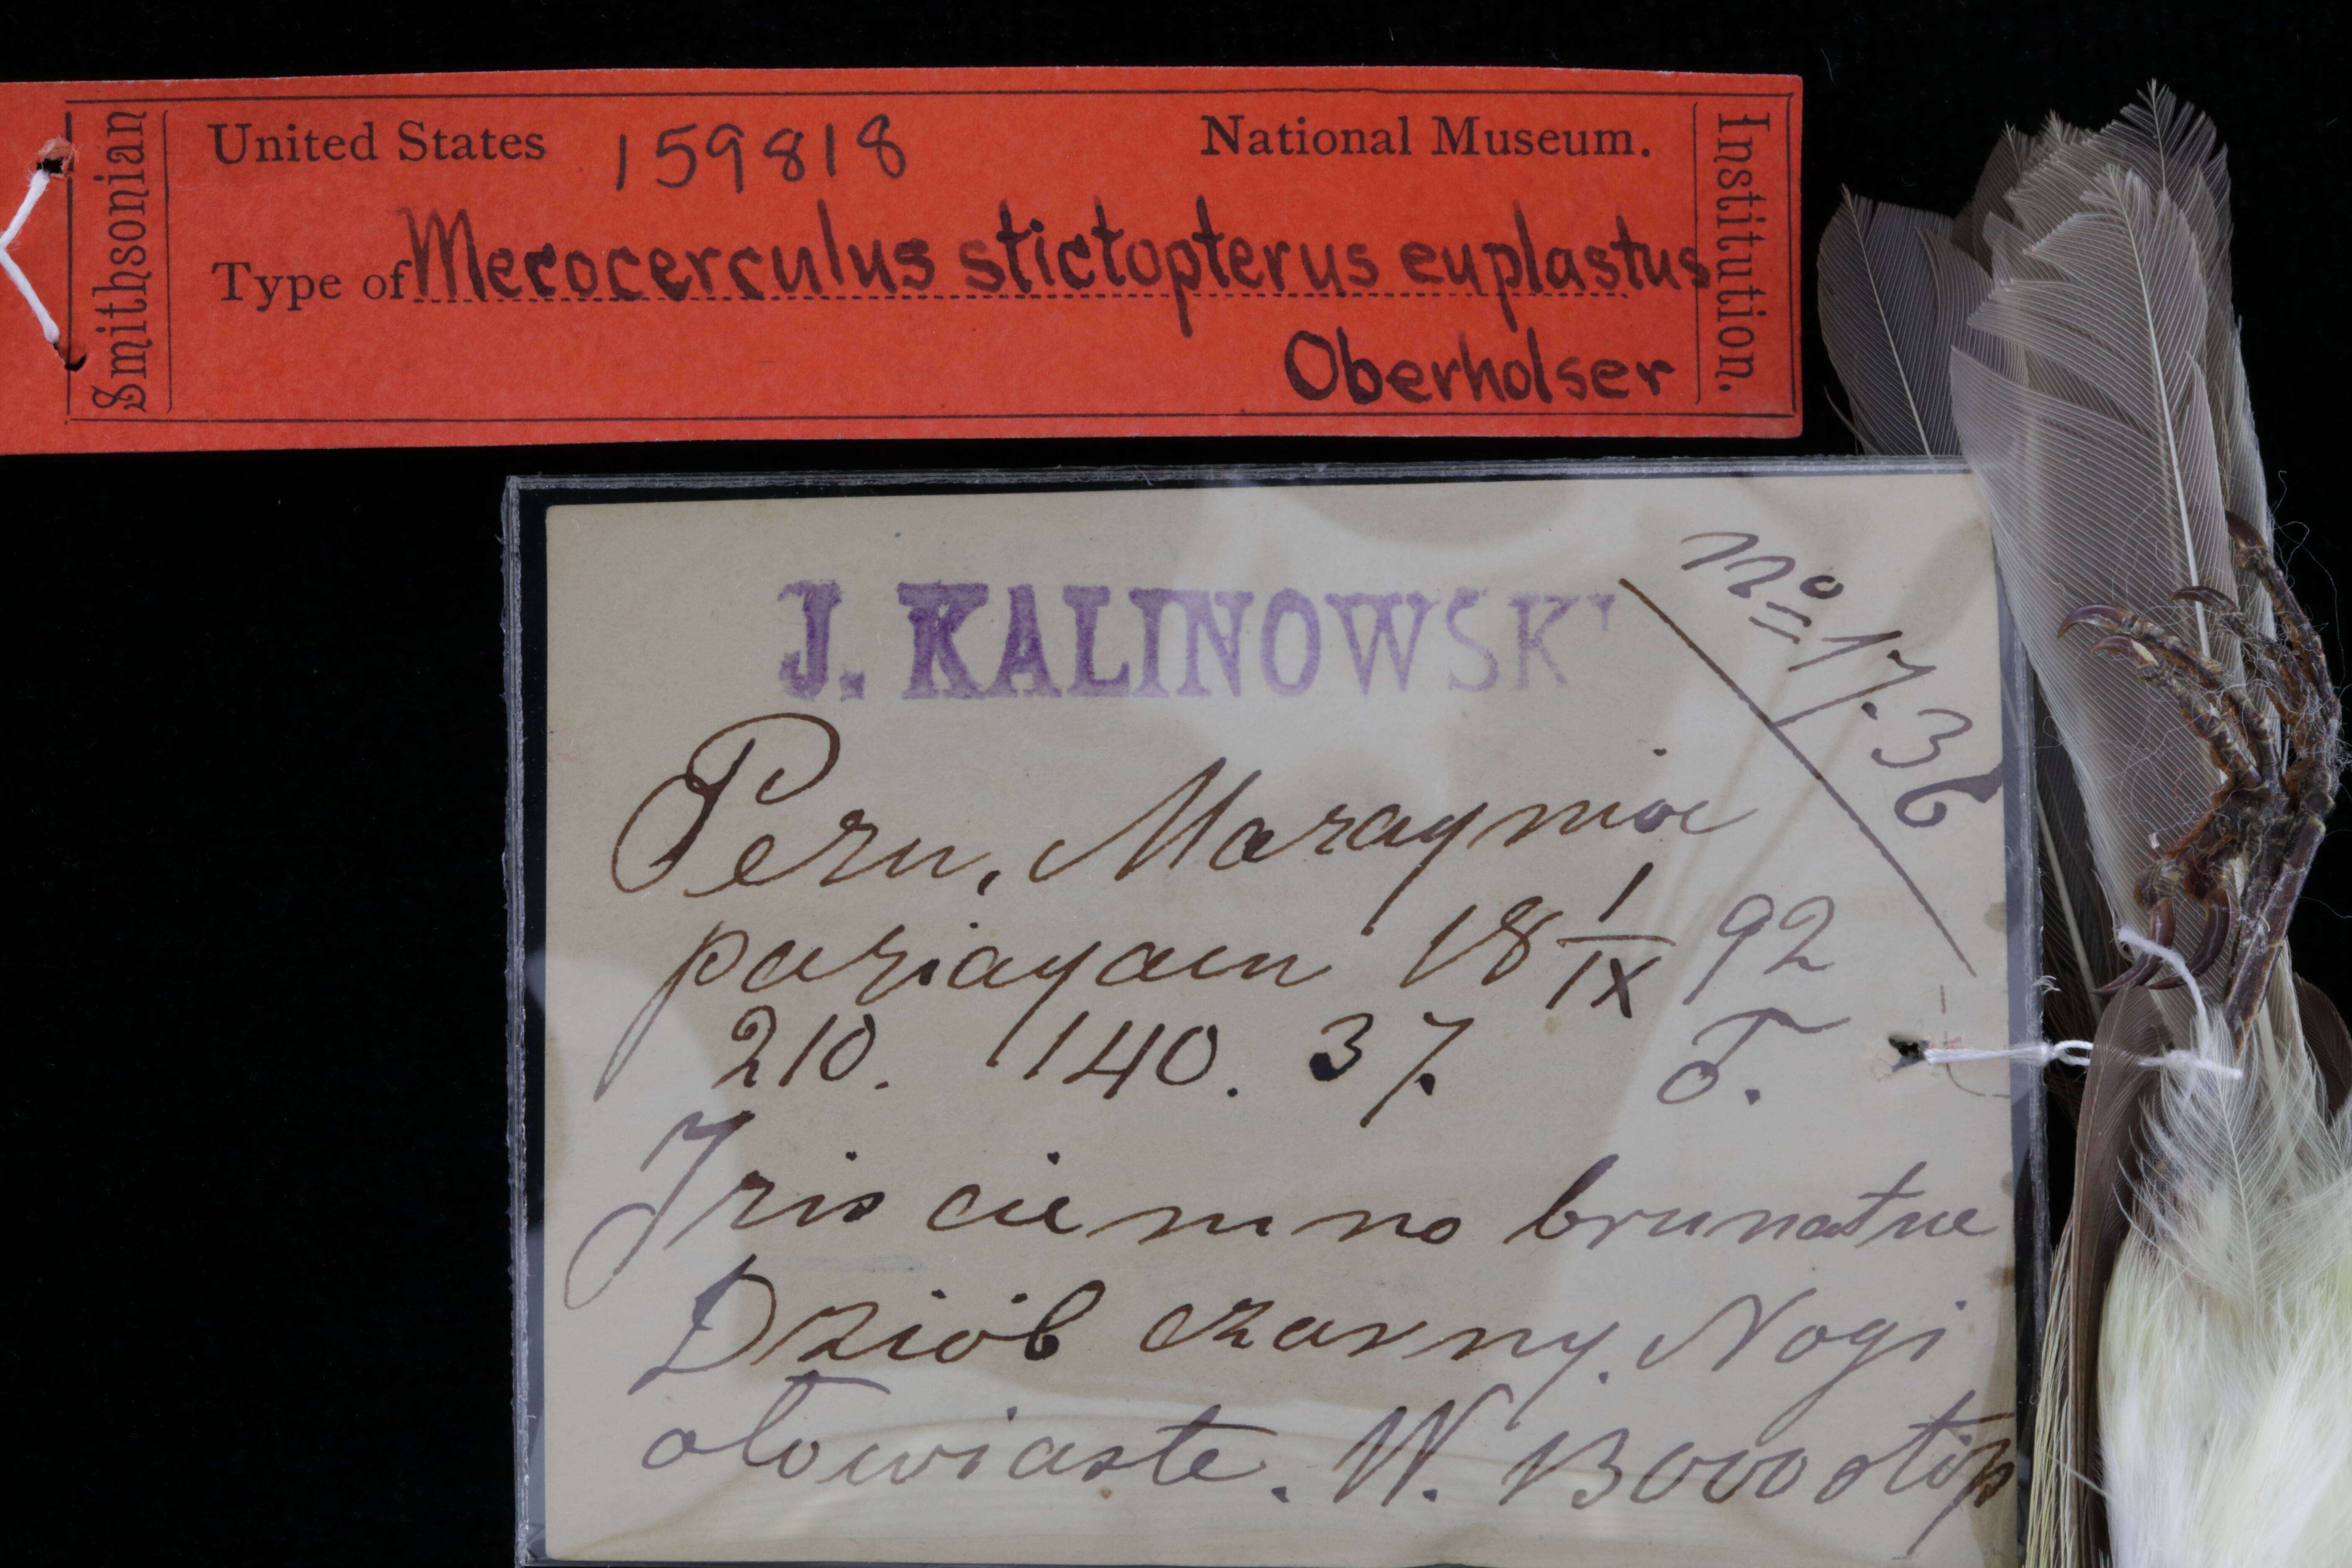 Smithsonian
United States 159818 National Museum.
Type of Mecocerculus stictopterus euplastus
Oberholser
Institution.
J. KALINOWSKI
No 17.36
Peru, Maraynioc
pariayacu 18 1/IX 92
210. 140. 37.
Iris ciemno brunatne
Dziób czarny. Nogi
ołowiaste. W. 13000 stóp